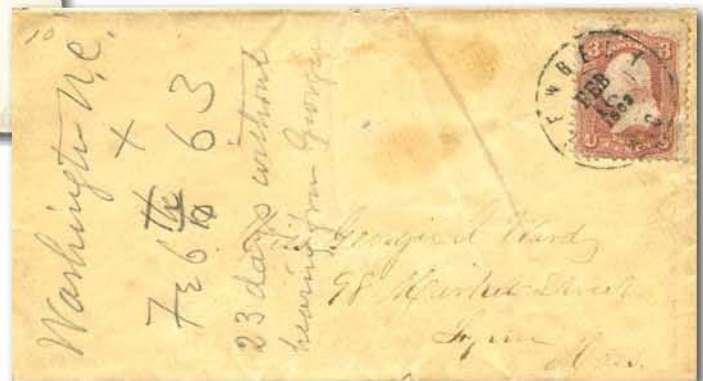 10
Washington N.C.
+
Feb 63
23 days without
hearing from Georgie
3 3
FEB
Miss Georgie A Ward
98 Market Street
Lynn
Mass.